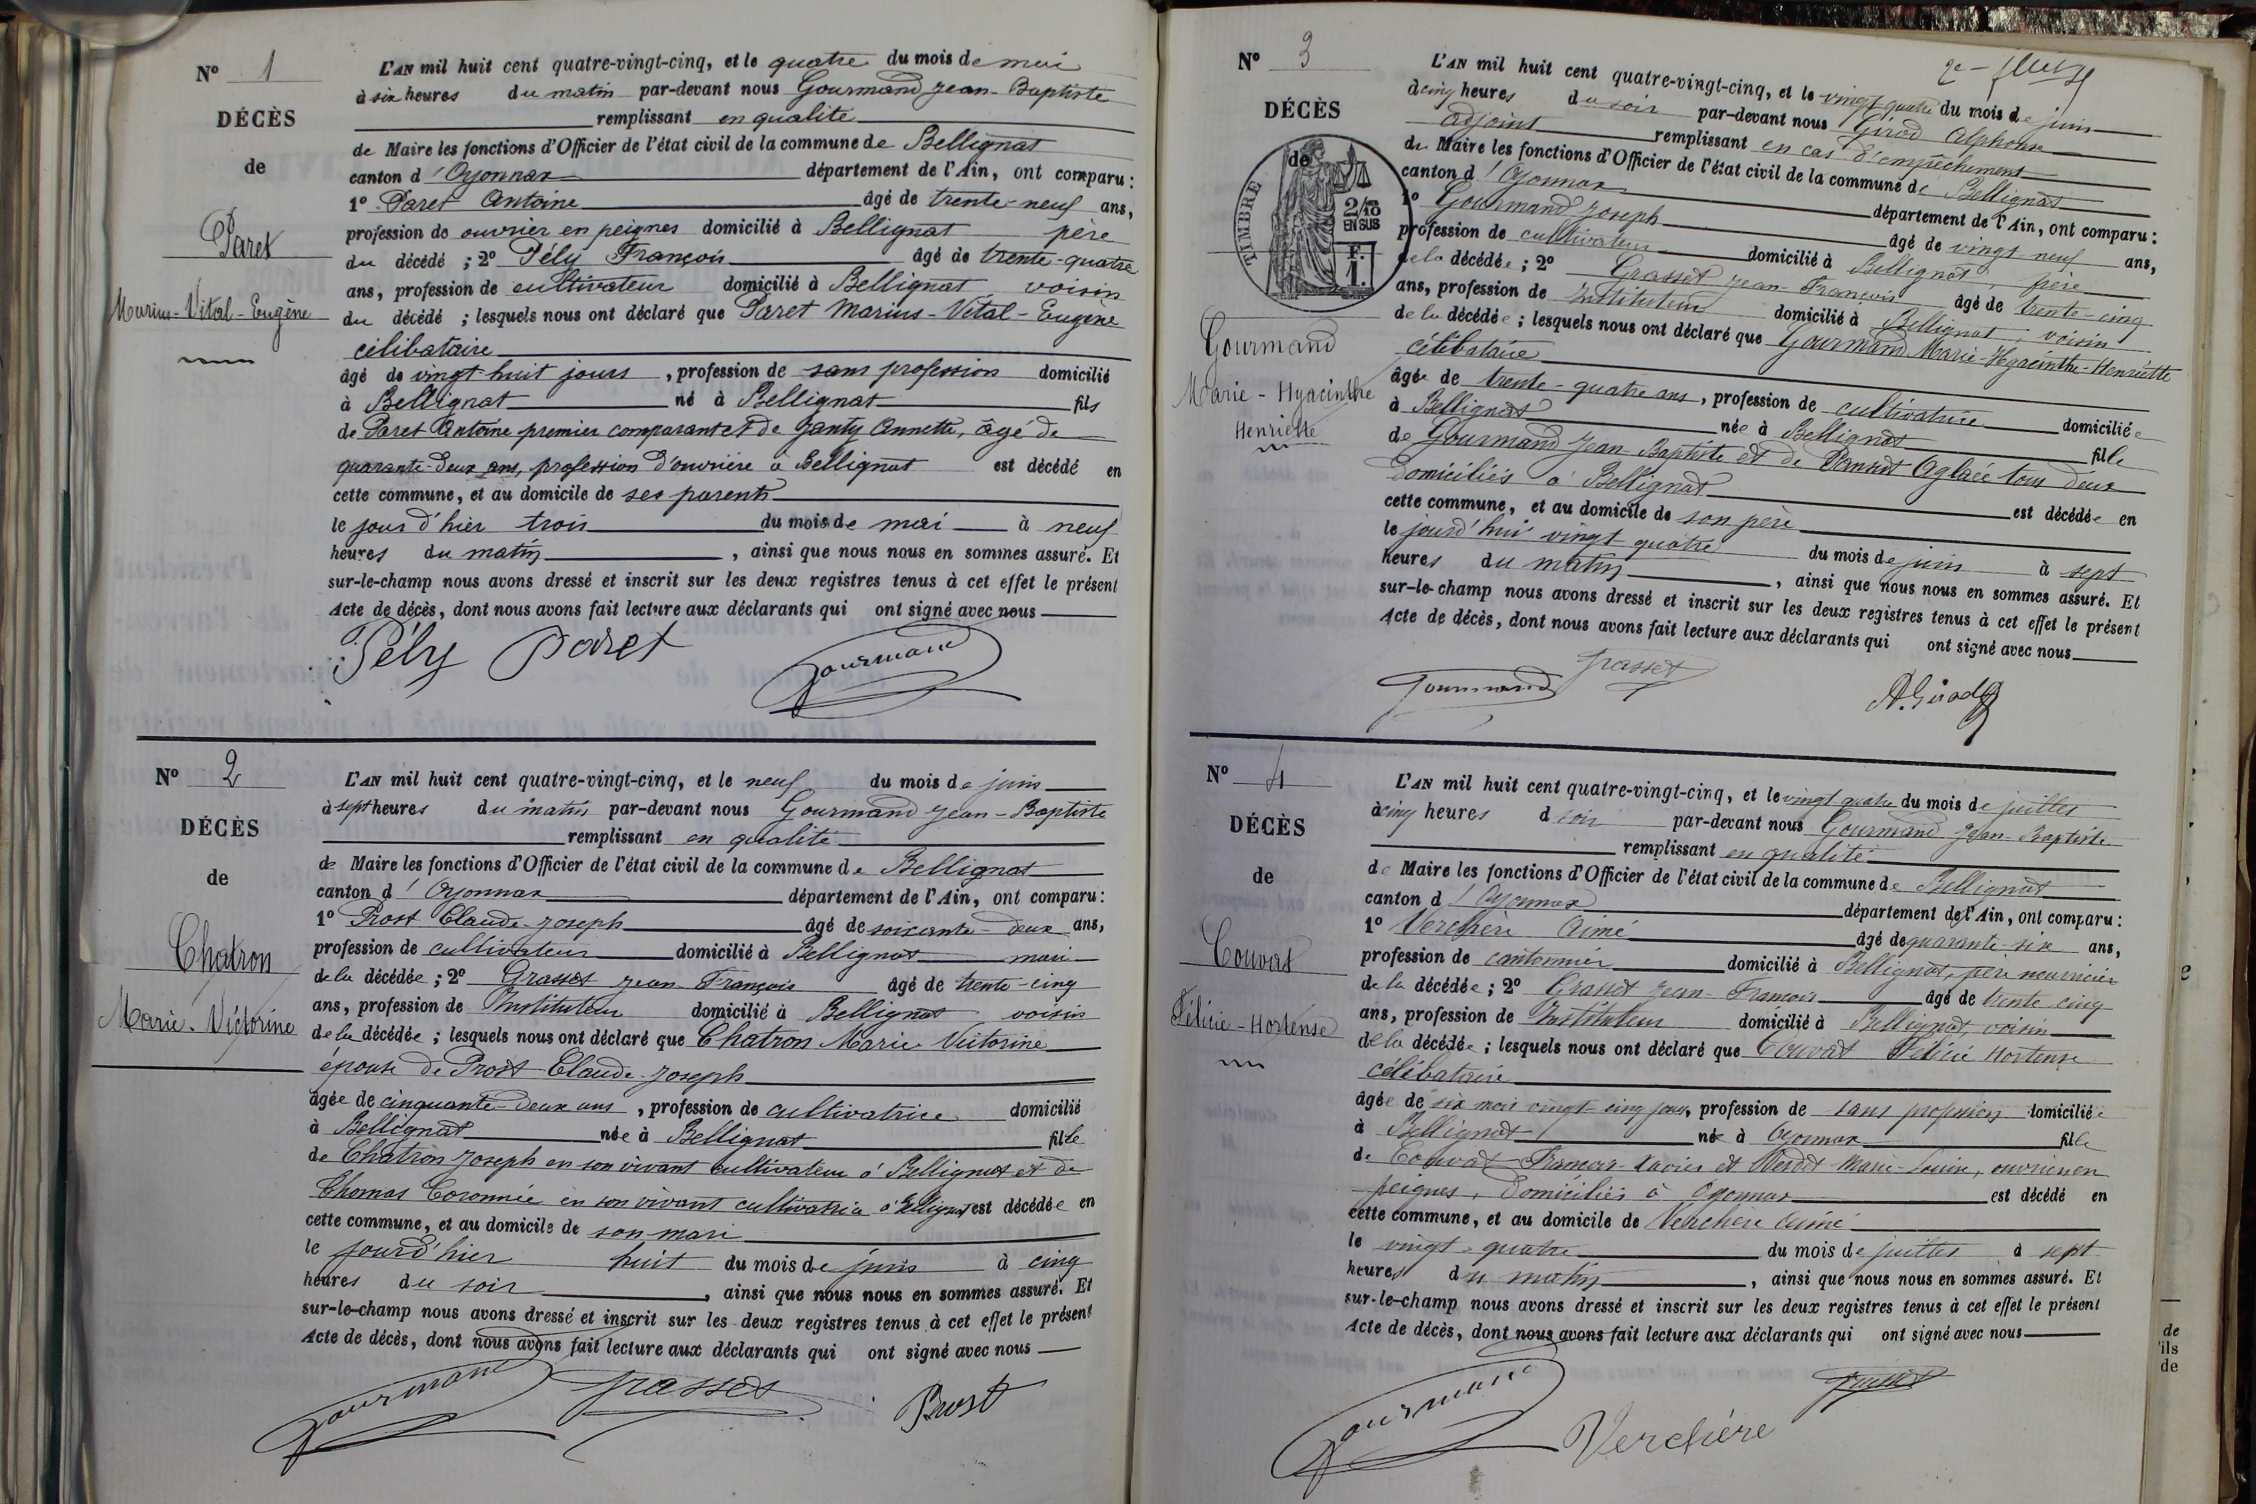 N° 1
DÉCÈS
de
Paret
Marius-Vital-Eugène
L'AN mil huit cent quatre-vingt-cinq, et le quatre du mois de mai
à six heures du matin par-devant nous Gourmand Jean-Baptiste
remplissant en qualité
de Maire les fonctions d'Officier de l'état civil de la commune de Bellignat
canton d'Oyonnax département de l'Ain, ont comparu:
1° Paret Antoine âgé de trente-neuf ans,
profession de ouvrier en peignes domicilié à Bellignat père
du décédé ; 2° Pély François âgé de trente-quatre
ans, profession de cultivateur domicilié à Bellignat voisin
du décédé ; lesquels nous ont déclaré que Paret Marius-Vital-Eugène
célibataire
âgé de vingt-huit jours , profession de sans profession domicilié
à Bellignat né à Bellignat fils
de Paret Antoine premier comparant et de Janty Annette, âgé de
quarante-deux ans, profession d'ouvrière à Bellignat est décédé en
cette commune, et au domicile de ses parents
le jour d'hier trois du mois de mai à neuf
heures du matin , ainsi que nous nous en sommes assuré. Et
sur-le-champ nous avons dressé et inscrit sur les deux registres tenus à cet effet le présent
Acte de décès, dont nous avons fait lecture aux déclarants qui ont signé avec nous
Pély Paret Gourmand
N° 2
DÉCÈS
de
Chatron
Marie-Victorine
L'AN mil huit cent quatre-vingt-cinq, et le neuf du mois de juin
à sept heures du matin par-devant nous Gourmand Jean-Baptiste
remplissant en qualité
de Maire les fonctions d'Officier de l'état civil de la commune de Bellignat
canton d'Oyonnax département de l'Ain, ont comparu:
1° Prost Claude-Joseph âgé de soixante-deux ans,
profession de cultivateur domicilié à Bellignat mari
de la décédée ; 2° Grasset Jean François âgé de trente-cinq
ans, profession de Instituteur domicilié à Bellignat voisin
de la décédée ; lesquels nous ont déclaré que Chatron Marie Victorine
épouse de Prost Claude-Joseph
âgée de cinquante-deux ans , profession de cultivatrice domicilié
à Bellignat née à Bellignat fille
de Chatron Joseph en son vivant cultivateur à Bellignat et de
Thomas en son vivant cultivatrice à Bellignat est décédée en
cette commune, et au domicile de son mari
le jourd'hier huit du mois de juin à cinq
heures du soir , ainsi que nous nous en sommes assuré. Et
sur-le-champ nous avons dressé et inscrit sur les deux registres tenus à cet effet le présent
Acte de décès, dont nous avons fait lecture aux déclarants qui ont signé avec nous
Gourmand Grasset Prost
2e
N° 3
DÉCÈS
de
TIMBRE
2/10
EN SUS
F.
1.
Gourmand
Marie-Hyacinthe
Henriette
L'AN mil huit cent quatre-vingt-cinq, et le vingt quatre du mois de juin
à cinq heures du soir par-devant nous Girod Alphonse
adjoint remplissant en cas d'empêchement
du Maire les fonctions d'Officier de l'état civil de la commune de Bellignat
canton d'Oyonnax département de l'Ain, ont comparu:
1° Gourmand Joseph âgé de vingt-neuf ans,
profession de cultivateur domicilié à Bellignat, père
de la décédée ; 2° Grasset Jean-François âgé de trente-cinq
ans, profession de Instituteur domicilié à Bellignat, voisin
de la décédée ; lesquels nous ont déclaré que Gourmand Marie-Hyacinthe-Henriette
célibataire
âgée de trente-quatre ans , profession de cultivatrice domiciliée
à Bellignat née à Bellignat fille
de Gourmand Jean-Baptiste et de Aglaée tous deux
domiciliés à Bellignat est décédée en
cette commune, et au domicile de son père
le jourd'hui vingt quatre du mois de juin à sept
heures du matin , ainsi que nous nous en sommes assuré. Et
sur-le-champ nous avons dressé et inscrit sur les deux registres tenus à cet effet le présent
Acte de décès, dont nous avons fait lecture aux déclarants qui ont signé avec nous
Gourmand Grasset A. Girod
N° 4
DÉCÈS
de
Couvat
Félicie-Hortense
L'AN mil huit cent quatre-vingt-cinq, et le vingt quatre du mois de juillet
à cinq heures d soir par-devant nous Gourmand Jean-Baptiste
remplissant en qualité
de Maire les fonctions d'Officier de l'état civil de la commune de Bellignat
canton d'Oyonnax département de l'Ain, ont comparu:
1° Verchère Aimé âgé de quarante-six ans,
profession de cantonnier domicilié à Bellignat, père nourricier
de la décédée ; 2° Grasset Jean-François âgé de trente cinq
ans, profession de Instituteur domicilié à Bellignat, voisin
de la décédée ; lesquels nous ont déclaré que Couvat Félicie Hortense
célibataire
âgée de six mois vingt-cinq jours, profession de sans profession domiciliée
à Bellignat née à Oyonnax fille
de Couvat François-Xavier et Marie-Louise, ouvriers en
peignes, domiciliés à Oyonnax est décédé en
cette commune, et au domicile de Verchère Aimé
le vingt-quatre du mois de juillet à sept
heures du matin , ainsi que nous nous en sommes assuré. Et
sur-le-champ nous avons dressé et inscrit sur les deux registres tenus à cet effet le présent
Acte de décès, dont nous avons fait lecture aux déclarants qui ont signé avec nous
Gourmand Verchère
de
ils
de